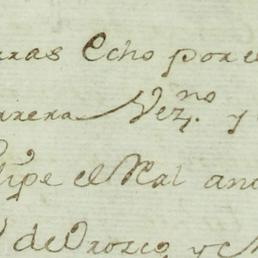 rras Echo por e
arrera Vez.no y
lipe el Real an
de Orozco, y